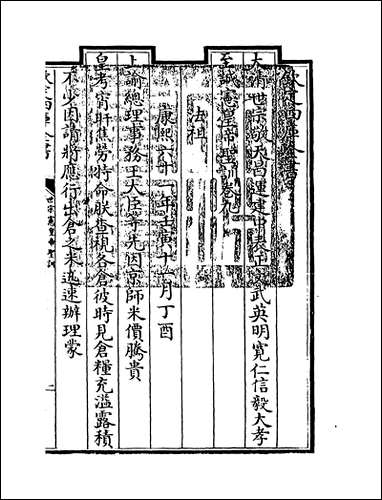 欽定四庫全書
大清世宗敬天昌運建中表正文武英明寬仁信毅大孝
至誠憲皇帝聖訓卷九
法祖
康熙六十一年壬寅十二月丁酉
上諭總理事務王大臣等先因京師米價騰貴
皇考宵旰焦勞特命朕查視各倉彼時見倉糧充溢露積
不少因請將應行出倉之米迅速辦理蒙
欽定四庫全書
世宗憲皇帝聖訓